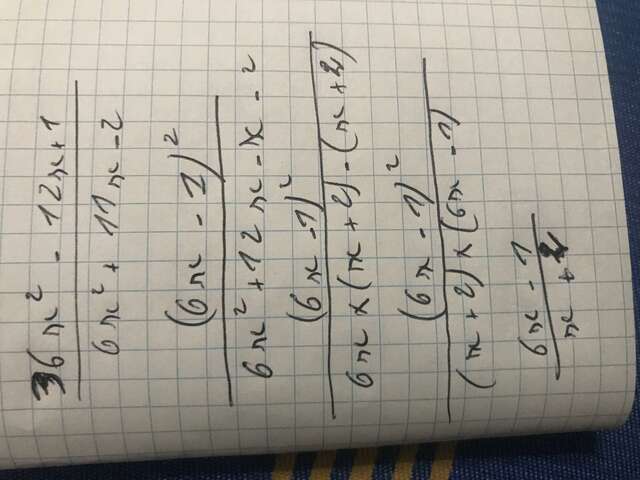 36x² - 12x+1
6x² + 11x - 2
(6x - 1)²
6x² + 12x - x - 2
(6x - 1)²
6x × (x + 2) - (x + 2)
(6x - 1)²
(x + 2) × (6x - 1)
6x - 1
x + 2